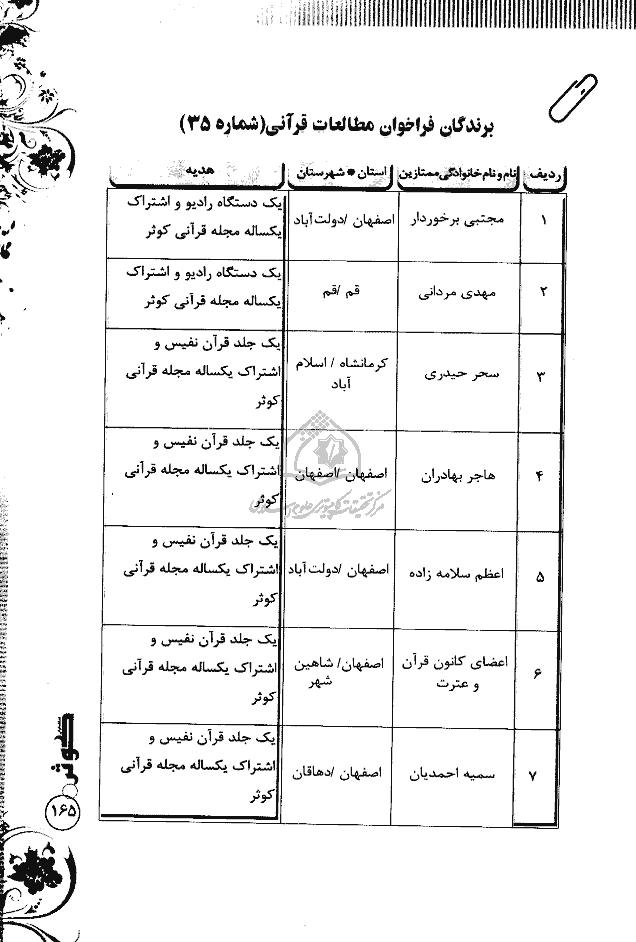 برندگان فراخوان مطالعات قرآنی(شماره ۳۵)
ردیف نام و نام خانوادگی ممتازین استان * شهرستان هدیه
۱ مجتبی برخوردار اصفهان /دولت آباد یک دستگاه رادیو و اشتراک
یکساله مجله قرآنی کوثر
۲ مهدی مردانی قم /قم یک دستگاه رادیو و اشتراک
یکساله مجله قرآنی کوثر
۳ سحر حیدری کرمانشاه / اسلام
آباد
یک جلد قرآن نفیس و
اشتراک یکساله مجله قرآنی
کوثر
۴ هاجر بهادران اصفهان /اصفهان یک جلد قرآن نفیس و
اشتراک یکساله مجله قرآنی
کوثر
۵ اعظم سلامه زاده اصفهان /دولت آباد یک جلد قرآن نفیس و
اشتراک یکساله مجله قرآنی
کوثر
۶ اعضای کانون قرآن
و عترت
اصفهان/ شاهین
شهر
یک جلد قرآن نفیس و
اشتراک یکساله مجله قرآنی
کوثر
۷ سمیه احمدیان اصفهان /دهاقان یک جلد قرآن نفیس و
اشتراک یکساله مجله قرآنی
کوثر
کوثر
۱۶۵